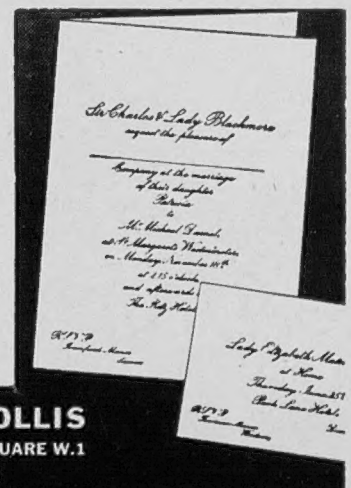 Sir Charles & Lady Blackmore
request the pleasure of
Company at the marriage
of their daughter
Patricia
to
Mr. Michael Daniel,
at St. Margaret's Westminster
on Monday, November 18th
at 2.15 o'clock
and afterwards
The Ritz Hotel
R.S.V.P.
Lady Elizabeth
at Home
Thursday, June 25
Park Lane Hotel,
R.S.V.P.
OLLIS
UARE W.1